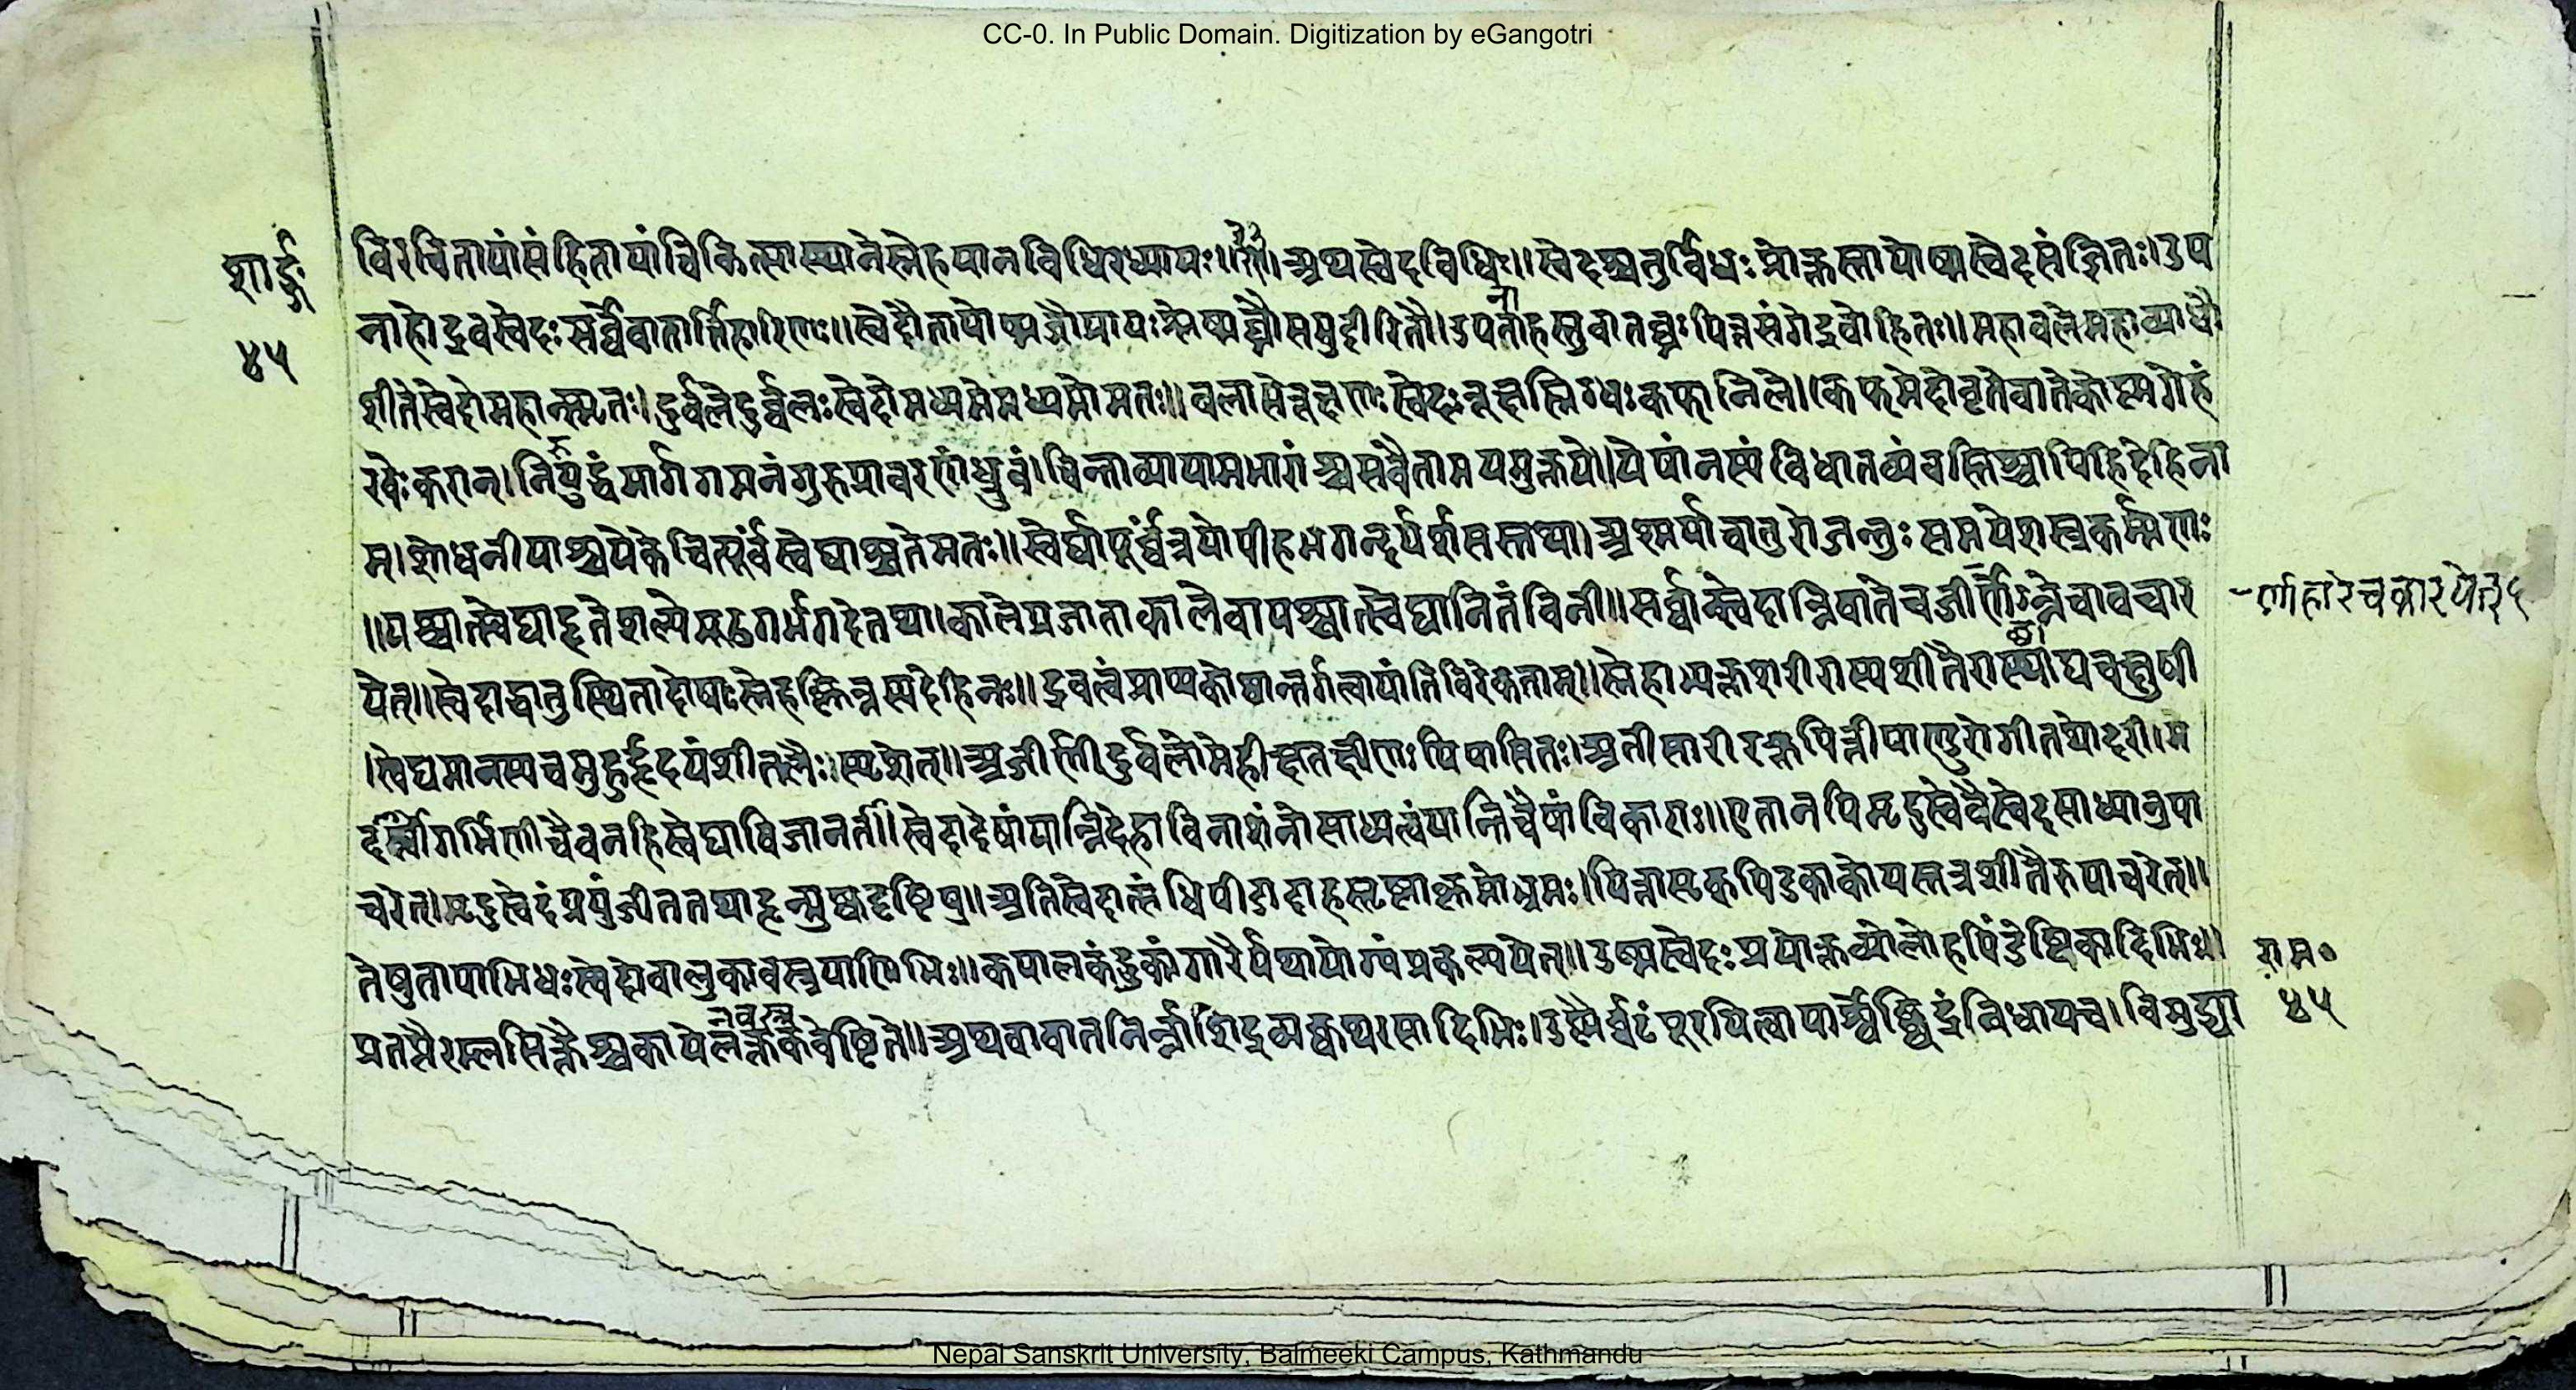 CC-0. In Public Domain. Digitization by eGangotri
शार्ङ्गः
४५
विरचितायांसंहितायांचिकित्सास्थानेस्नेहपानविधिरध्यायः॥ ॥अथस्वेदविधिः॥स्वेदश्चतुर्विधःप्रोक्तस्तापोष्मस्वेदसंज्ञितः।उप
नाहोद्रवस्वेदःसर्व्वेवातार्त्तिहारिणः॥स्वेदौतापोष्मजौप्रायःश्लेष्मघ्नौसमुदीरितौ।उपनाहस्तुवातघ्नःपित्तसंगेद्रवोहितः॥महावलेमहाव्याधौ
शीतेस्वेदोमहान्स्मृतः।दुर्वलेदुर्व्वलःस्वेदोमध्यमेमध्यमोमतः॥वलासेरूक्षणःस्वेदःरूक्षस्निग्धःकफानिले।कफमेदोवृतेवातेकोष्मगेहं
रवेःकरान्।नियुद्धंमार्गगमनंगुरुप्रावरणंध्रुवं।चिन्ताव्यायामभारांश्चसेवेतामयमुक्तये॥येषांनस्यंविधातव्यंवस्तिश्चापिहिदेहिना
म्।शोधनीयाश्चयेकेचित्पूर्वंस्वेद्याश्चतेमतः॥स्वेद्यापूर्व्वंत्रयोपीहभगन्दर्यर्शसस्तथा।अश्मर्याचातुरोजन्तुःसमयेशस्त्रकर्म्मणः
॥पश्चात्स्वेद्याहृतेशल्येमूढगर्भगदेतथा।कालेप्रजाताकालेवापश्चात्स्वेद्यानितंविनी॥सर्व्वान्स्वेदान्निवातेचजीर्णेऽन्नेचावचार
र्णाहारेचकारयेत् ६
येत्॥स्वेदाद्धातुस्थितादोषाःस्नेहक्लिन्नस्यदेहिनः॥द्रवत्वंप्राप्यकोष्ठान्तर्गत्वायांतिविरेकताम्॥स्नेहाभ्यक्तशरीरस्यशीतैराच्छाद्यचक्षुषी
।स्वेद्यमानस्यचमुहुर्हृदयंशीतलैःस्पृशेत्॥अजीर्णीदुर्वलोमेहीक्षतक्षीणःपिपासितः।अतीसारीरक्तपित्तीपाण्डुरोगीतथोदरी।म
दार्त्तोगर्भिणीचैवनहिस्वेद्याविजानता॥स्वेदादेषांयान्तिदेहाविनाशंनोसाध्यत्वंयान्तिचैषांविकाराः॥एतानपिमृदुस्वेदैस्वेदसाध्यानुपा
चरेत्।मृदुस्वेदंप्रयुंजीततथाहृन्मुष्कदृष्टिषु॥अतिस्वेदात्संधिपीडादाहस्तृष्णाक्लमोभ्रमः।पित्तासृक्पिडकाकोपस्तत्रशीतैरुपाचरेत्॥
तेषुतापाभिधःस्वेदोवालुकावस्त्रपाणिभिः॥कपालकंदुकांगारैर्यथायोग्यंप्रकल्पयेत्॥उष्मस्वेदःप्रयोक्तव्योलोहपिंडेष्टिकादिभिः॥
राम०
४५
प्रतप्तैरम्लसिक्तैश्चकायेलक्तकवेष्टिते॥अथवावातनिर्न्नाशिद्रव्यक्वथरसादिभिः।उष्णैर्घटंपूरयित्वापार्श्वेछिद्रंविधायच।विमुद्र्या
Nepal Sanskrit University, Balmeeki Campus, Kathmandu